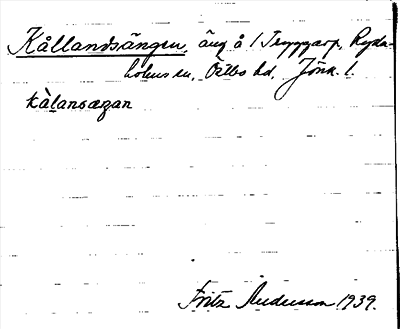 Kållandsängen, äng å 1 Tryggarp, Ryda-
holms sn, Östbo hd, Jönk. l.
kålansæŋan
Fritz Andersson 1939.